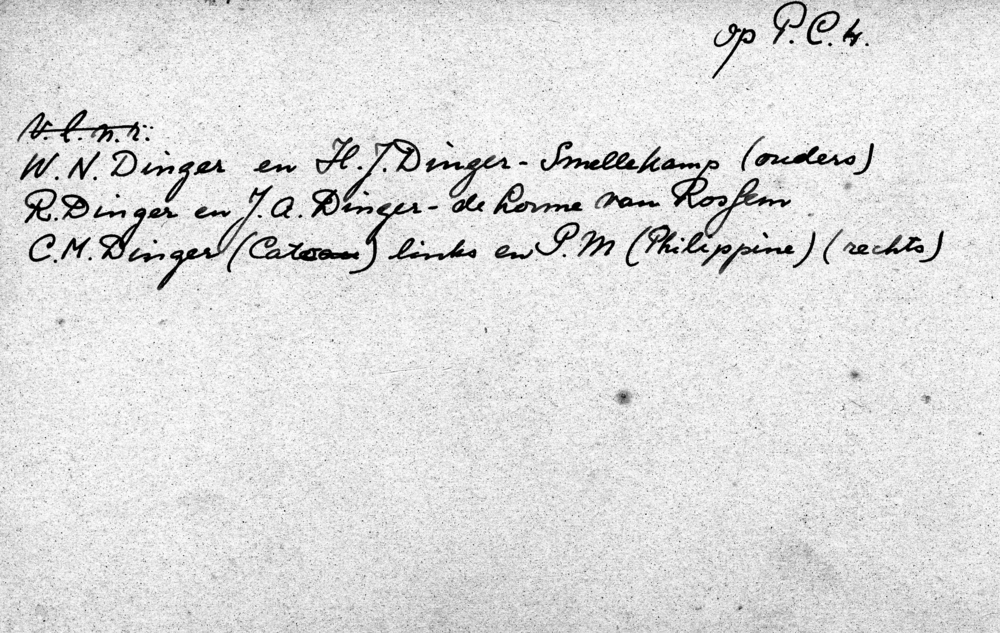 op P.C.H.
V.l.n.r.:
W.N. Dinger en H.J. Dinger - Smellekamp (ouders)
R. Dinger en J.A. Dinger - de Lorme van Rossem
C.M. Dinger (Catoau) links en P.M (Philippine) (rechts)